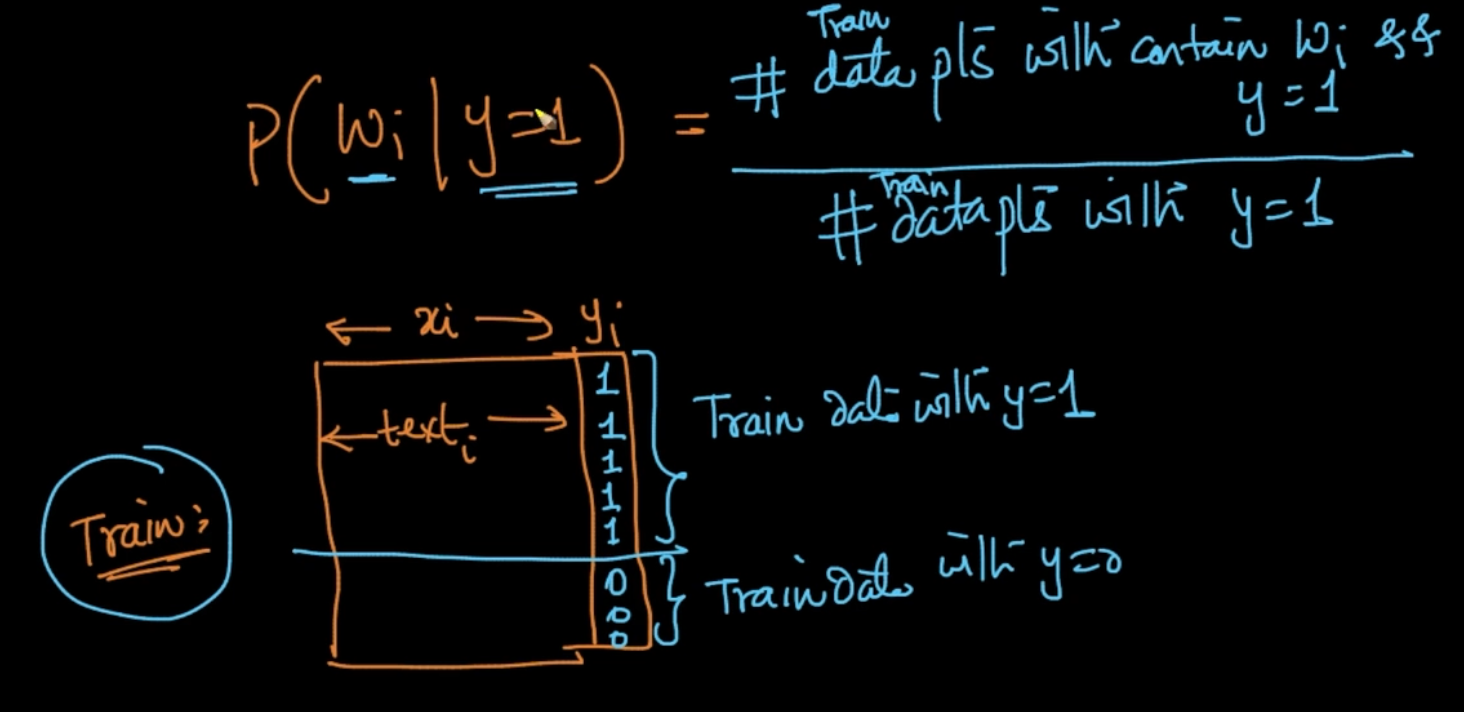 P(wi | y=1) =
Train
# data pts with contain wi &&
y=1
Train
# data pts with y=1
← xi → yi
1
← texti → 1
1
1
1
0
0
0
Train data with y=1
Train:
Train data with y=0